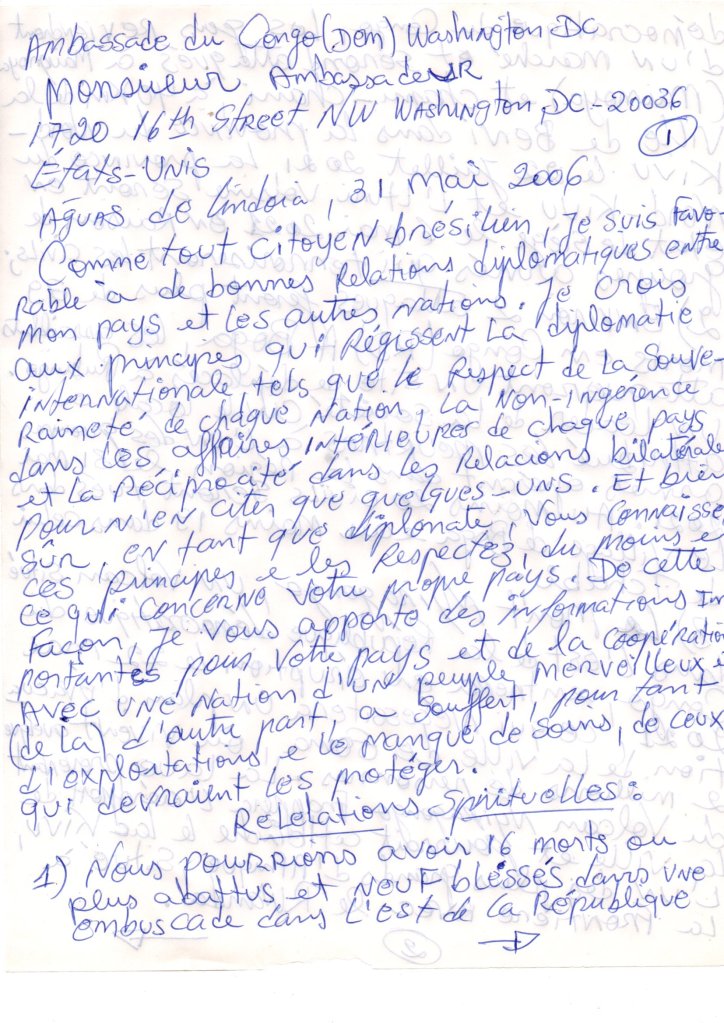 Ambassade du Congo (Dem) Washington DC
Monsieur Ambassadeur
1720 16th Street NW Washington, DC-20036
1
États-Unis
Águas de Lindoia, 31 mai 2006
Comme tout citoyen brésilien, je suis favo-
rable à de bonnes relations diplomatiques entre
mon pays et les autres nations. Je crois
aux principes qui régissent la diplomatie
internationale tels que le respect de la souve-
raineté de chaque nation, la non-ingérence
dans les affaires intérieures de chaque pays
et la réciprocité dans les relacions bilatérale
pour n'en citer que quelques-uns. Et bien
sûr, en tant que diplomate, vous connaisse
ces principes e les respectez, du moins e
ce qui concerne votre propre pays. De cette
façon, je vous apporte des informations im
portantes pour votre pays et de la coopération
avec une nation d'un peuple merveilleux
(de là) d'autre part, a souffert, pour tant
d'explortations e le manque de soins, de ceux
qui devraient les protéger.
Relelations Spirituelles:
1) Nous pourrions avoir 16 morts ou
plus abattus et neuf blessés dans une
embuscade dans l'est de la République